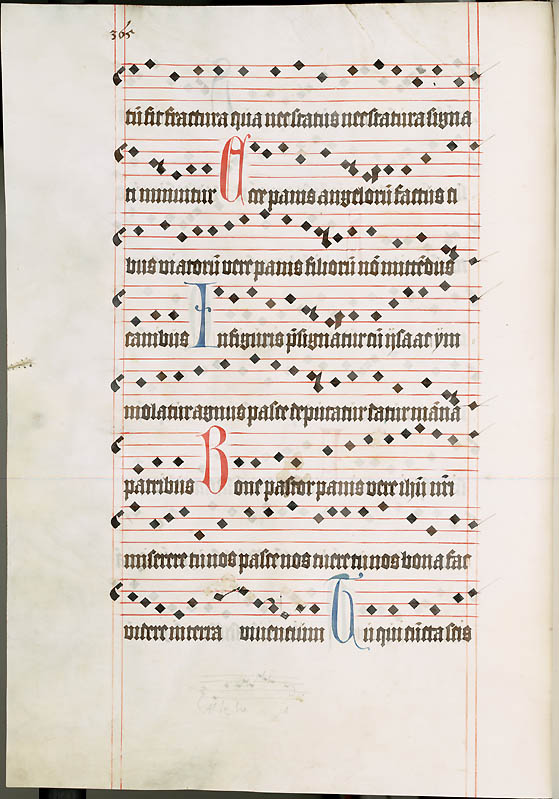 365
tū fit fractura qua nec status nec statura signa
ti minuitur Ecce panis angelorū factus ci
bus viatorū vere panis filiorū nō mittēdus
canibus In figuris p̄signatur cū ysaac ym
molatur agnus pasce deputatur datur māna
patribus Bone pastor panis vere ihū nr̄i
miserere tu nos pasce nos tuere tu nos bona fac
videre in terra viventium Tu qui cūcta scis